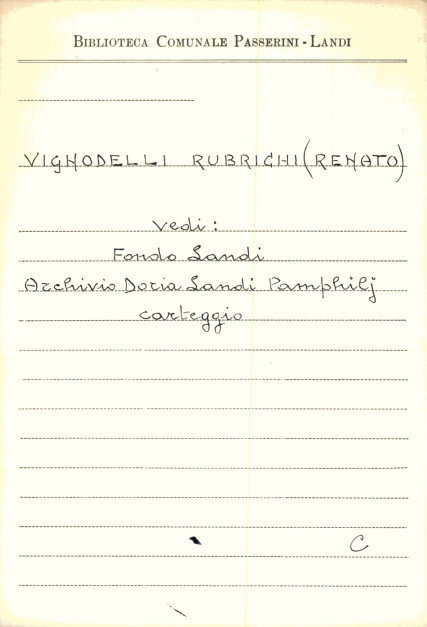 BIBLIOTECA COMUNALE PASSERINI - LANDI
VIGNODELLI RUBRICHI (RENATO)
vedi :
Fondo Landi
Archivio Doria Landi Pamphilj
carteggio
C